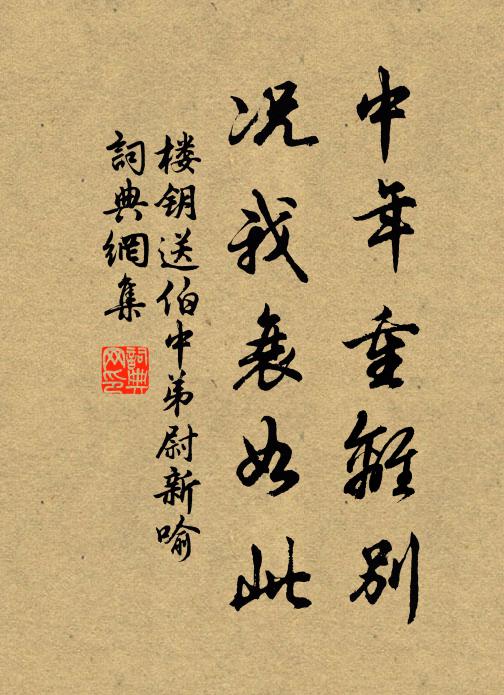 中年重離別
况我衰如此
楼钥送伯中弟尉新喻
詞典網集
詞典网印